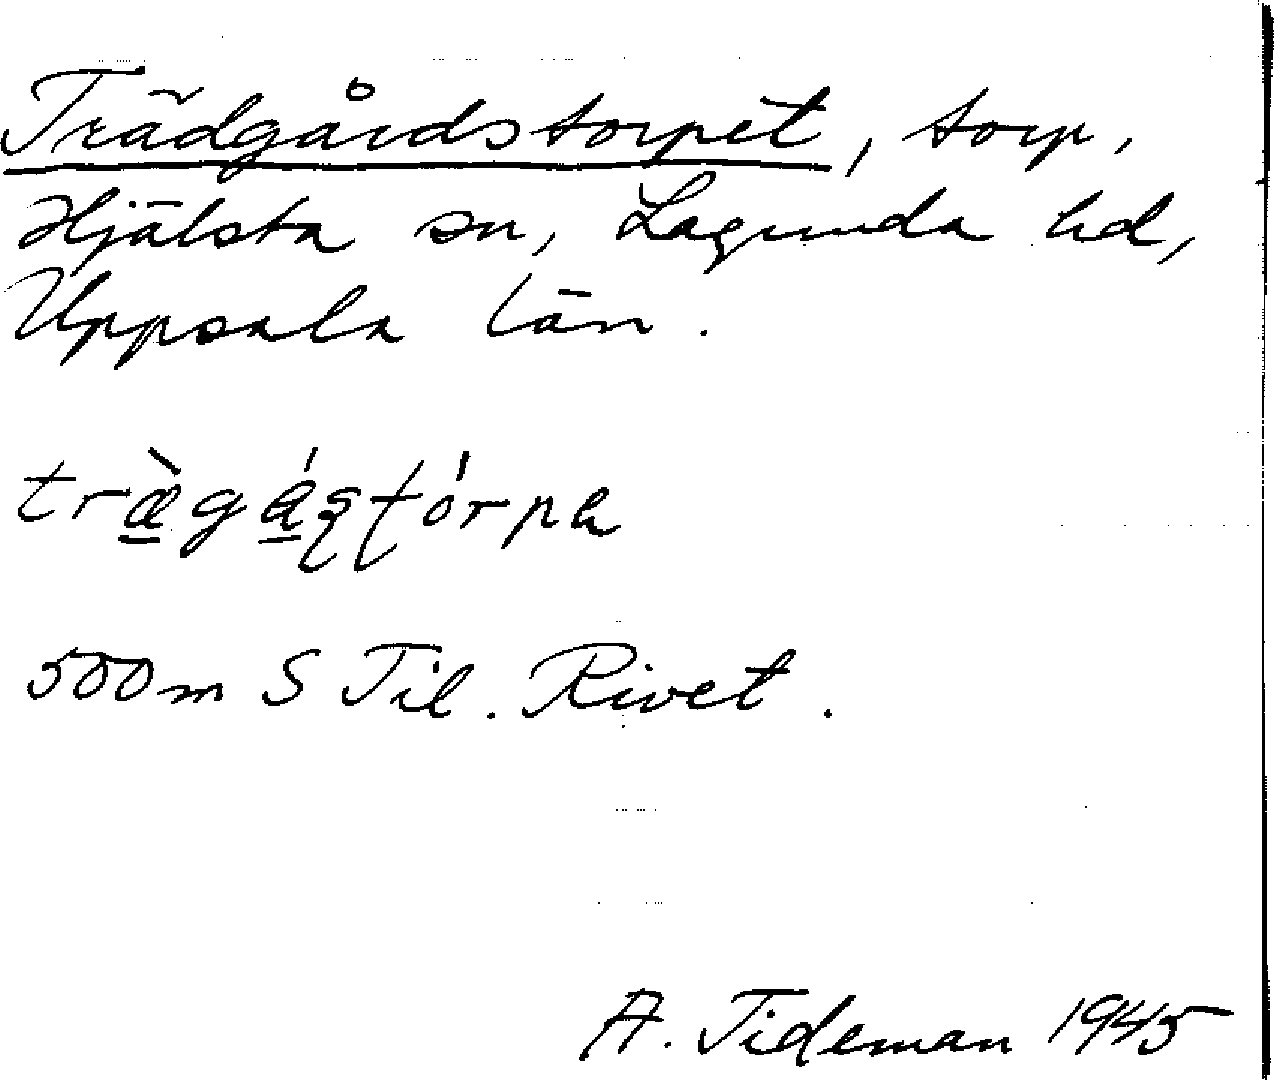 Trädgårdstorpet, torp,
Hjälsta sn, Lagunda hd,
Uppsala län.
træ̠̀gǻ̠ʂʈórpa
500 m S Til. Rivet.
A. Tideman 1945